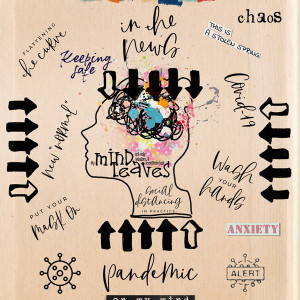 in the
news
chaos
FLATTENING
the curve
THIS IS
A STOLEN SPRING
Keeping
safe
Covid-19
"new normal"
mind
leaves
Wash
YOUR
hands
social
distancing
IN PRACTICE
PUT YOUR
Mask On
ANXIETY
pandemic
ALERT
on my mind